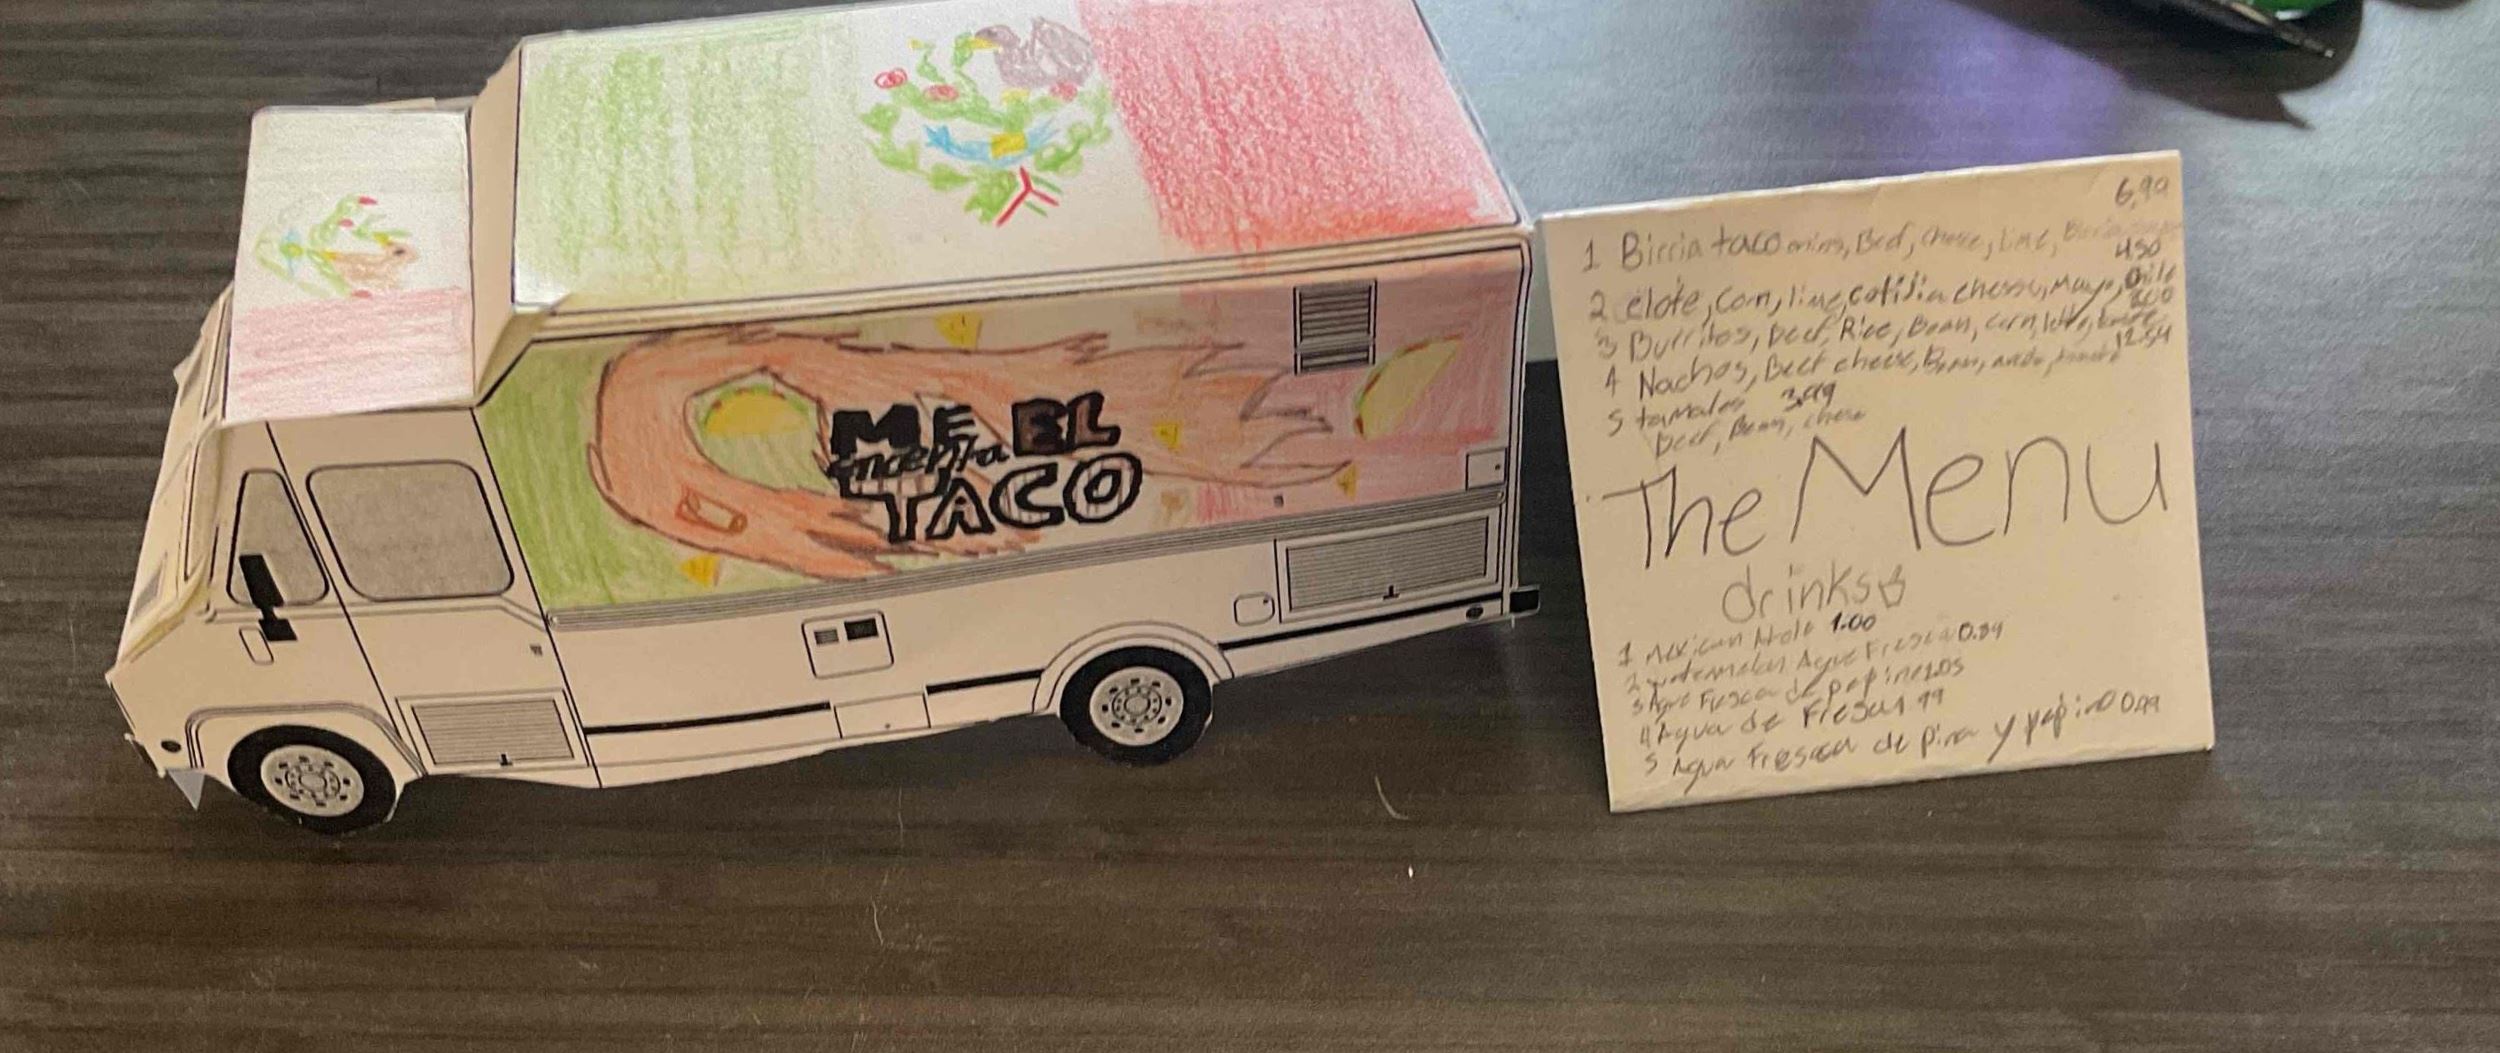 ME EL
encanta
TACO
6.99
1 Birria taco onion, Beef, cheese, lime,
4.50
2 elote, Corn, lime, cotidia cheese, Mayo, Chile
3 Burritos, Beef, Rice, Bean, corn,
12.54
4 Nachos, Beef cheese, Bean,
5 tamales 3.99
Beef, Bean, chese
The Menu
drinks
1 Mexican Atole 1.00
2 watermelon Agua Fresca 0.84
3 Agua Fresca de pepino 1.05
4 Agua de Fresas 99
5 Agua Fresca de pina y pepino 0.99